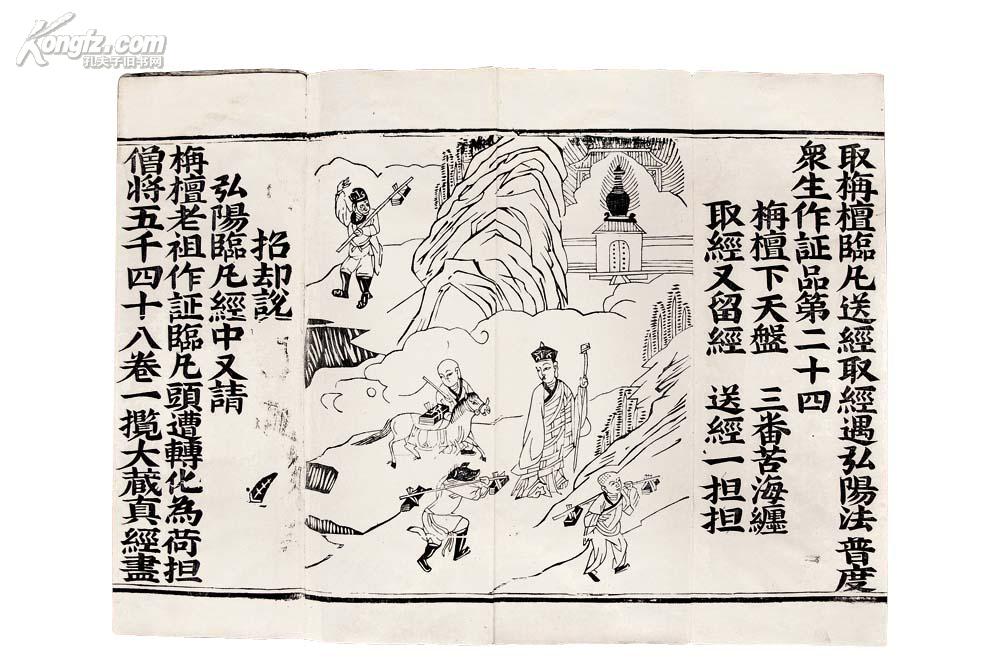 Kongfz.com
孔夫子旧书网
取栴檀臨凢送經取經遇弘陽法普度
衆生作証品第二十四
栴檀下天盤　三番苦海纒
取經又留經　送經一担担
招却說
弘陽臨凢經中又請
栴檀老祖作証臨凢頭遭轉化為荷担
僧将五千四十八卷一攬大蔵真經盡